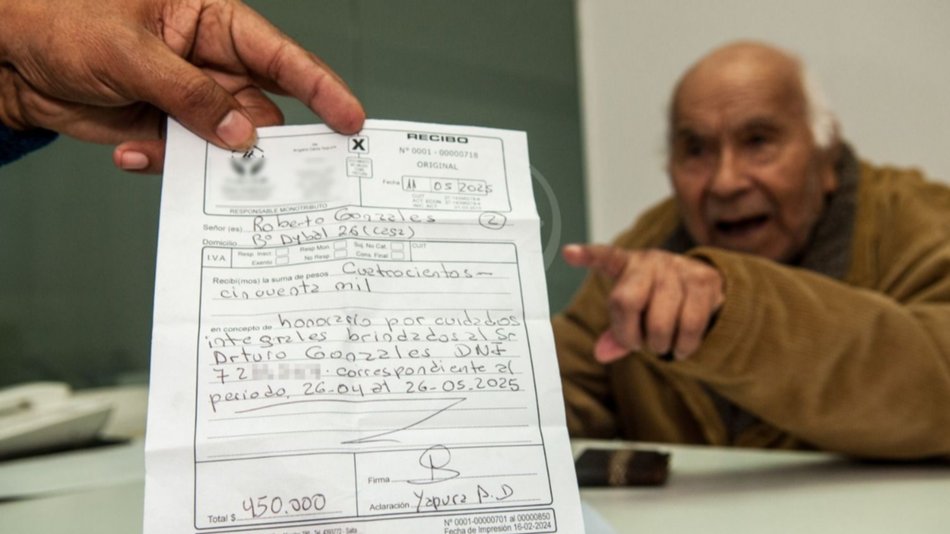 RECIBO
X
Nº 0001 - 00000718
ORIGINAL
Fecha 11 05 2025
RESPONSABLE MONOTRIBUTO
Señor (es) Roberto Gonzales 2
Domicilio Bº Dybal 26 (casa)
I.V.A Resp Inscr. Resp Mon. Suj. No Cat. CUIT
Exento No Resp Cons. Final
Recibí(mos) la suma de pesos Cuatrocientos -
cincuenta mil
en concepto de honorario por cuidados
integrales brindados al Sr
Arturo Gonzales DNI
72 correspondiente al
periodo, 26-04 al 26-05-2025
Firma
Total $ 450.000
Aclaración Yapura A.D
Nº 0001-00000701 al 00000850
Fecha de Impresión 16-02-2024